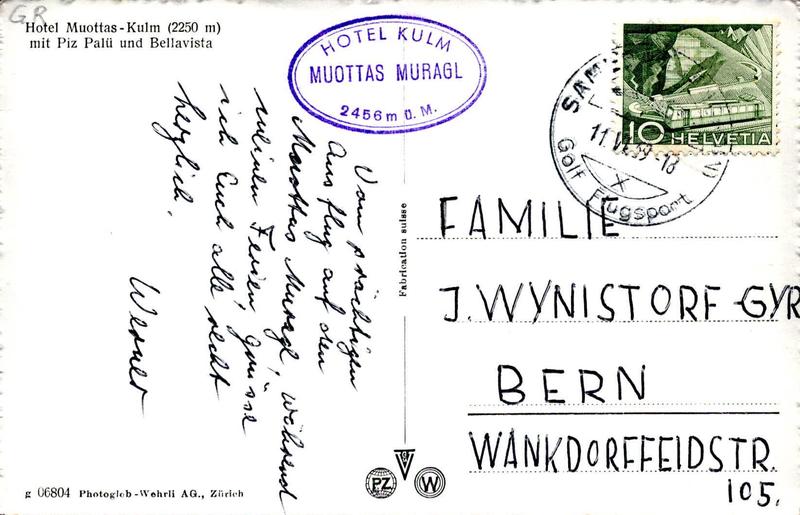 GR
Hotel Muottas-Kulm (2250 m)
mit Piz Palü und Bellavista
HOTEL KULM
MUOTTAS MURAGL
2456 m ü. M.
10 HELVETIA
Golf Flugsport
Vom prächtigen
Ausflug auf den
Muottas Muragl, während
meinen Ferien, grüsse
ich Euch alle recht
herzlich.
Werner
Fabrication suisse
FAMILIE
J. WYNISTORF-GYR
BERN
WANKDORFFELDSTR.
105.
PZ
W
g 06804 Photoglob-Wehrli AG., Zürich